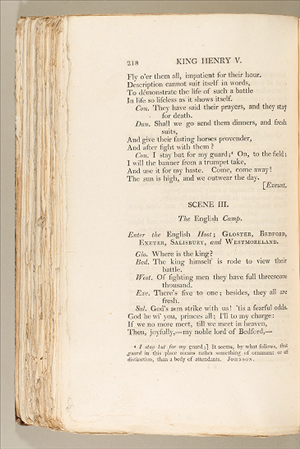 218 KING HENRY V.
Fly o'er them all, impatient for their hour.
Description cannot suit itself in words,
To démonstrate the life of such a battle
In life so lifeless as it shows itself.
Con. They have said their prayers, and they stay
for death.
Dau. Shall we go send them dinners, and fresh
suits,
And give their fasting horses provender,
And after fight with them?
Con. I stay but for my guard;⁴ On, to the field:
I will the banner from a trumpet take,
And use it for my haste. Come, come away!
The sun is high, and we outwear the day.
[Exeunt.
SCENE III.
The English Camp.
Enter the English Host; GLOSTER, BEDFORD,
EXETER, SALISBURY, and WESTMORELAND.
Glo. Where is the king?
Bed. The king himself is rode to view their
battle.
West. Of fighting men they have full threescore
thousand.
Exe. There's five to one; besides, they all are
fresh.
Sal. God's arm strike with us! 'tis a fearful odds.
God be wi' you, princes all; I'll to my charge:
If we no more meet, till we meet in heaven,
Then, joyfully,—my noble lord of Bedford,—
⁴ I stay but for my guard;] It seems, by what follows, that
guard in this place means rather something of ornament or of
distinction, than a body of attendants. JOHNSON.